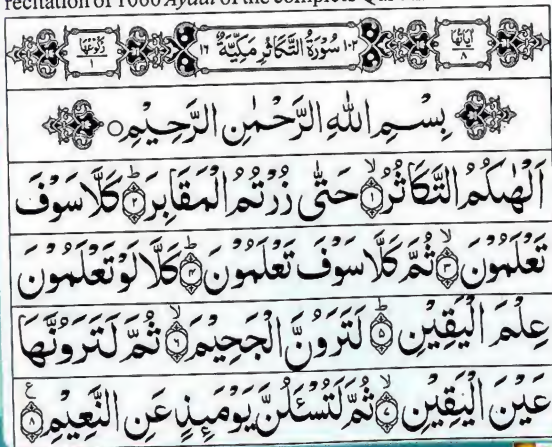 recitation of 1000 Ayaat of the complete Qur'
اٰیَاتُهَا ٨ ١٠٢ سُوْرَةُ التَّكَاثُرِ مَكِّيَّةٌ ١٦ رُكُوْعُهَا ١
بِسْمِ اللّٰهِ الرَّحْمٰنِ الرَّحِيْمِ ○
اَلْهٰىكُمُ التَّكَاثُرُ ۙ﴿١﴾ حَتّٰى زُرْتُمُ الْمَقَابِرَ ؕ﴿٢﴾ كَلَّا سَوْفَ
تَعْلَمُوْنَ ۙ﴿٣﴾ ثُمَّ كَلَّا سَوْفَ تَعْلَمُوْنَ ؕ﴿٤﴾ كَلَّا لَوْ تَعْلَمُوْنَ
عِلْمَ الْيَقِيْنِ ؕ﴿٥﴾ لَتَرَوُنَّ الْجَحِيْمَ ۙ﴿٦﴾ ثُمَّ لَتَرَوُنَّهَا
عَيْنَ الْيَقِيْنِ ۙ﴿٧﴾ ثُمَّ لَتُسْـَٔلُنَّ يَوْمَىِٕذٍ عَنِ النَّعِيْمِ ﴿٨﴾ ع